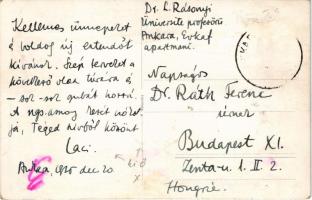 Kellemes ünnepeket
és boldog új esztendőt
kívánok. Szép tervekt a
következő olasz túrára és
– sok-sok gubát hozzá.
A ngsamog
ja, Téged híVből köszönt
Laci.
Ankara, 1935 dec 20.
Dr. L. Rásonyi
Üniversite profesörü
Ankara, Evkaf
apartmanı.
Nagyságos
Dr. Ráth Ferenc
úrnak
Budapest XI.
Zenta-u. 1. II. 2.
Hongrie.